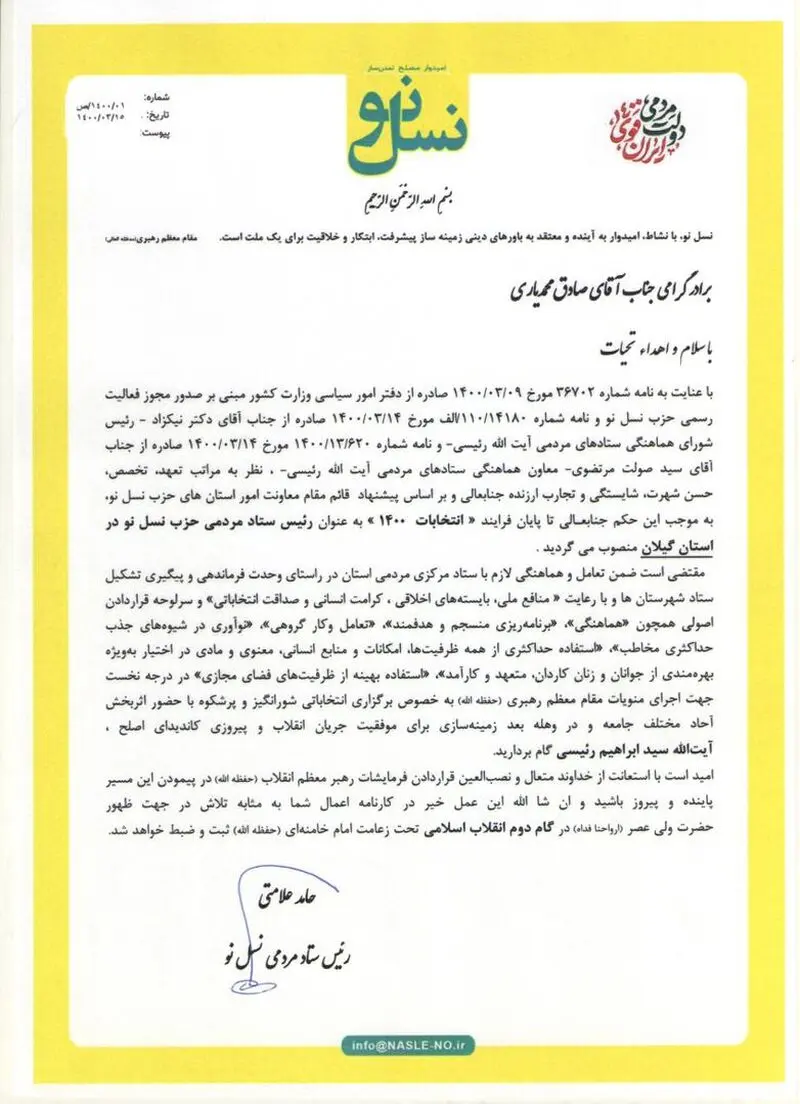 امیدوار مصلح تمدن‌ساز
نسل نو
دولت مردمی ایران قوی
شماره: ۱۴۰۰/۰۱/ص
تاریخ: ۱۴۰۰/۰۳/۱۵
پیوست:
بسم الله الرحمن الرحیم
نسل نو، با نشاط، امیدوار به آینده و معتقد به باورهای دینی زمینه ساز پیشرفت، ابتکار و خلاقیت برای یک ملت است. مقام معظم رهبری(حفظه الله)
برادر گرامی جناب آقای صادق محمدیاری
با سلام و اهداء تحیات
با عنایت به نامه شماره ۳۶۷۰۲ مورخ ۱۴۰۰/۰۳/۰۹ صادره از دفتر امور سیاسی وزارت کشور مبنی بر صدور مجوز فعالیت
رسمی حزب نسل نو و نامه شماره ۱۱۰/۱۴۱۸۰/الف مورخ ۱۴۰۰/۰۳/۱۴ صادره از جناب آقای دکتر نیکزاد - رئیس
شورای هماهنگی ستادهای مردمی آیت الله رئیسی- و نامه شماره ۱۴۰۰/۱۳/۶۲۰ مورخ ۱۴۰۰/۰۳/۱۴ صادره از جناب
آقای سید صولت مرتضوی- معاون هماهنگی ستادهای مردمی آیت الله رئیسی- ، نظر به مراتب تعهد، تخصص،
حسن شهرت، شایستگی و تجارب ارزنده جنابعالی و بر اساس پیشنهاد قائم مقام معاونت امور استان های حزب نسل نو،
به موجب این حکم جنابعـالی تا پایان فرایند « انتخابات ۱۴۰۰ » به عنوان رئیس ستاد مردمی حزب نسل نو در
استان گیلان منصوب می گردید .
مقتضی است ضمن تعامل و هماهنگی لازم با ستاد مرکزی مردمی استان در راستای وحدت فرماندهی و پیگیری تشکیل
ستاد شهرستان ها و با رعایت « منافع ملی، بایسته‌های اخلاقی ، کرامت انسانی و صداقت انتخاباتی» و سرلوحه قراردادن
اصولی همچون «هماهنگی»، «برنامه‌ریزی منسجم و هدفمند»، «تعامل وکار گروهی»، «نوآوری در شیوه‌های جذب
حداکثری مخاطب»، «استفاده حداکثری از همه ظرفیت‌ها، امکانات و منابع انسانی، معنوی و مادی در اختیار به‌ویژه
بهره‌مندی از جوانان و زنان کاردان، متعهد و کارآمد»، «استفاده بهینه از ظرفیت‌های فضای مجازی» در درجه نخست
جهت اجرای منویات مقام معظم رهبری (حفظه الله) به خصوص برگزاری انتخاباتی شورانگیز و پرشکوه با حضور اثربخش
آحاد مختلف جامعه و در وهله بعد زمینه‌سازی برای موفقیت جریان انقلاب و پیروزی کاندیدای اصلح ،
آیت‌الله سید ابراهیم رئیسی گام بردارید.
امید است با استعانت از خداوند متعال و نصب‌العین قراردادن فرمایشات رهبر معظم انقلاب (حفظه الله) در پیمودن این مسیر
پاینده و پیروز باشید و ان شا الله این عمل خیر در کارنامه اعمال شما به مثابه تلاش در جهت ظهور
حضرت ولی عصر (ارواحنا فداه) در گام دوم انقلاب اسلامی تحت زعامت امام خامنه‌ای (حفظه الله) ثبت و ضبط خواهد شد.
حامد علامتی
رئیس ستاد مردمی نسل نو
info@NASLE-NO.ir